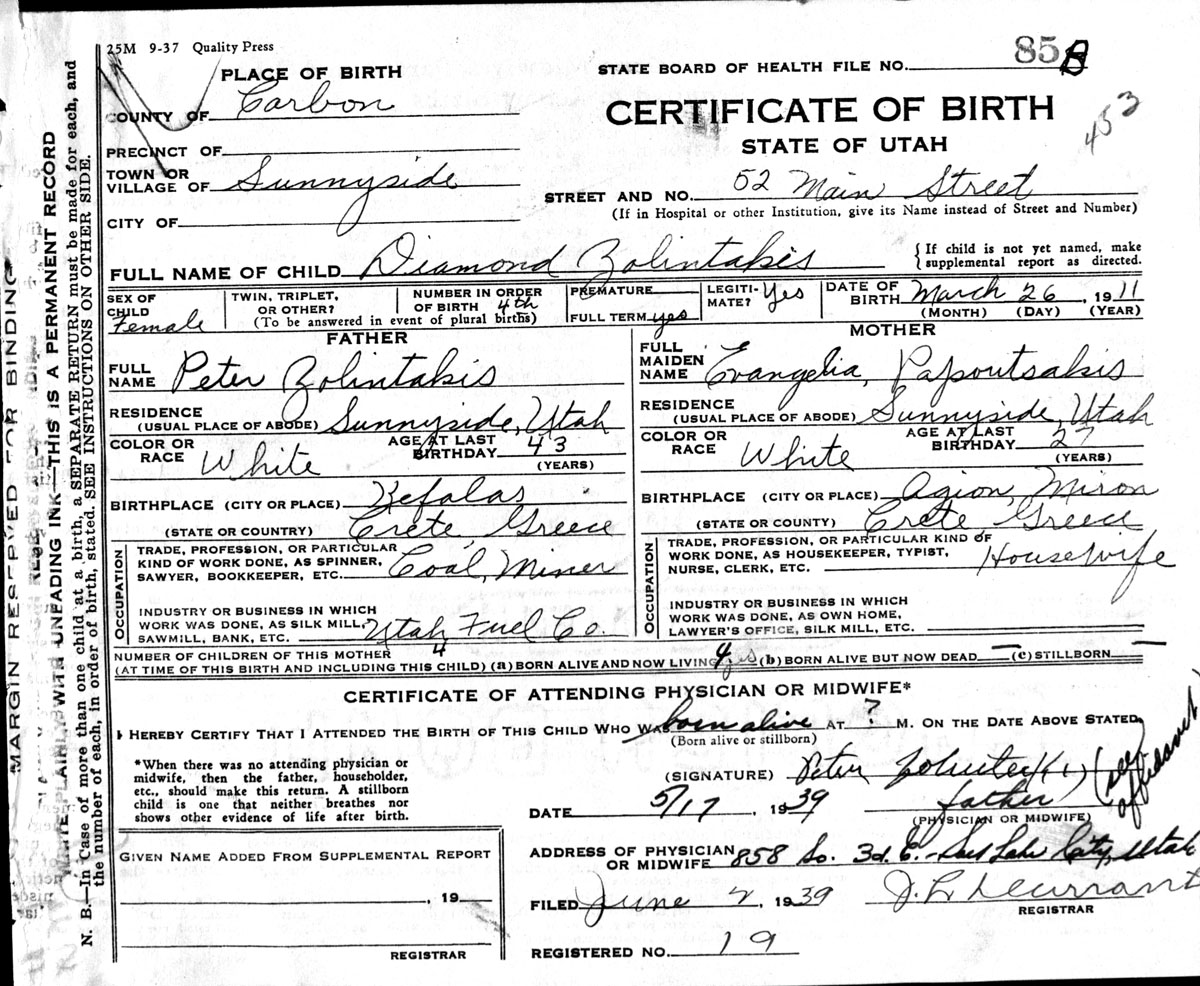 25M 9-37 Quality Press
PLACE OF BIRTH
COUNTY OF Carbon
PRECINCT OF
TOWN OR
VILLAGE OF Sunnyside
CITY OF
STATE BOARD OF HEALTH FILE NO. 858
453
CERTIFICATE OF BIRTH
STATE OF UTAH
STREET AND NO. 52 Main Street
(If in Hospital or other Institution, give its Name instead of Street and Number)
FULL NAME OF CHILD Diamond Zolintakis
{If child is not yet named, make
supplemental report as directed.
SEX OF
CHILD Female
TWIN, TRIPLET,
OR OTHER?
NUMBER IN ORDER
OF BIRTH 4th
(To be answered in event of plural births)
PREMATURE
FULL TERM yes
LEGITI-
MATE? Yes
DATE OF
BIRTH March 26, 1911
(MONTH) (DAY) (YEAR)
FATHER
FULL
NAME Peter Zolintakis
RESIDENCE
(USUAL PLACE OF ABODE) Sunnyside, Utah
COLOR OR
RACE White
AGE AT LAST
BIRTHDAY 43
(YEARS)
BIRTHPLACE (CITY OR PLACE) Kefalas
(STATE OR COUNTRY) Crete, Greece
OCCUPATION
TRADE, PROFESSION, OR PARTICULAR
KIND OF WORK DONE, AS SPINNER,
SAWYER, BOOKKEEPER, ETC. Coal, Miner
INDUSTRY OR BUSINESS IN WHICH
WORK WAS DONE, AS SILK MILL,
SAWMILL, BANK, ETC. Utah Fuel Co.
MOTHER
FULL
MAIDEN
NAME Evangelia, Papoutsakis
RESIDENCE
(USUAL PLACE OF ABODE) Sunnyside, Utah
COLOR OR
RACE White
AGE AT LAST
BIRTHDAY 27
(YEARS)
BIRTHPLACE (CITY OR PLACE) Agion, Miron
(STATE OR COUNTY) Crete, Greece
OCCUPATION
TRADE, PROFESSION, OR PARTICULAR KIND OF
WORK DONE, AS HOUSEKEEPER, TYPIST,
NURSE, CLERK, ETC. Housewife
INDUSTRY OR BUSINESS IN WHICH
WORK WAS DONE, AS OWN HOME,
LAWYER'S OFFICE, SILK MILL, ETC.
NUMBER OF CHILDREN OF THIS MOTHER 4
(AT TIME OF THIS BIRTH AND INCLUDING THIS CHILD) (a) BORN ALIVE AND NOW LIVING 4 yes (b) BORN ALIVE BUT NOW DEAD — (c) STILLBORN —
CERTIFICATE OF ATTENDING PHYSICIAN OR MIDWIFE*
I HEREBY CERTIFY THAT I ATTENDED THE BIRTH OF THIS CHILD WHO WAS born alive AT ? M. ON THE DATE ABOVE STATED
(Born alive or stillborn)
*When there was no attending physician or
midwife, then the father, householder,
etc., should make this return. A stillborn
child is one that neither breathes nor
shows other evidence of life after birth.
(SIGNATURE) Peter
father
(see
affidavit)
DATE 5/17, 1939
(PHYSICIAN OR MIDWIFE)
GIVEN NAME ADDED FROM SUPPLEMENTAL REPORT
, 19
REGISTRAR
ADDRESS OF PHYSICIAN
OR MIDWIFE 858 So. 3d. E. - Salt Lake City, Utah
FILED June 2, 1939
J. L. Durrant
REGISTRAR
REGISTERED NO. 19
MARGIN RESERVED FOR BINDING
WRITE PLAINLY, WITH UNFADING INK—THIS IS A PERMANENT RECORD
N. B.—In Case of more than one child at a birth, a SEPARATE RETURN must be made for each, and
the number of each, in order of birth, stated. SEE INSTRUCTIONS ON OTHER SIDE.